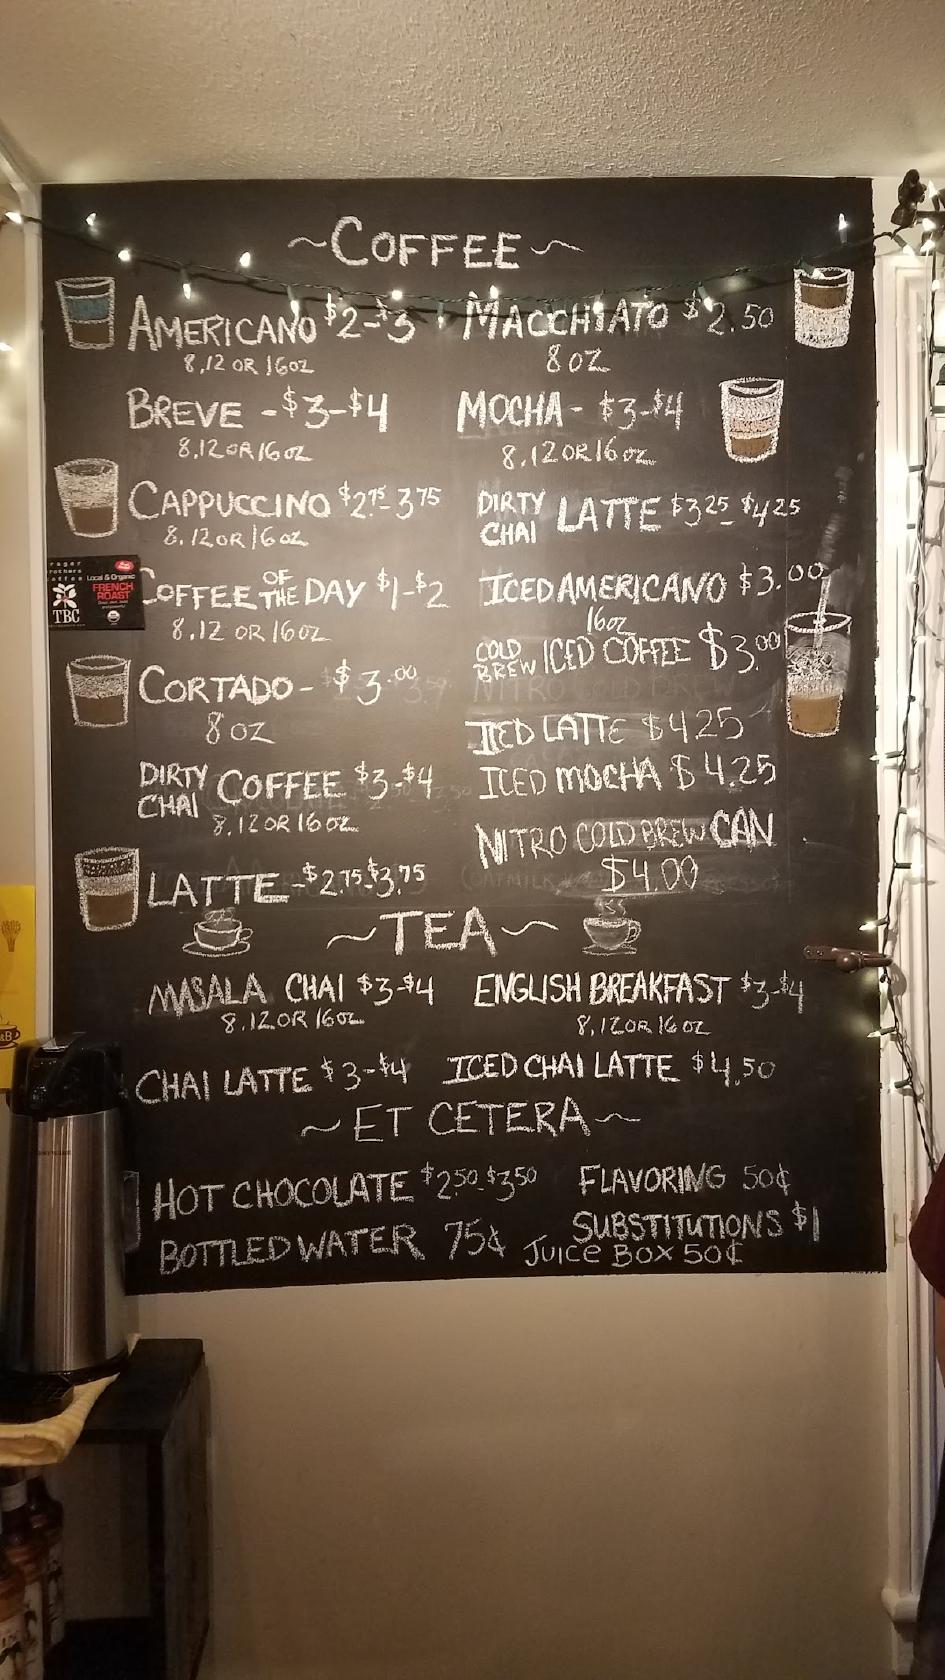 ~COFFEE~
AMERICANO $2-$3
8,12 OR 16oz
BREVE -$3-$4
8,12 OR 16oz
CAPPUCCINO $2.75-3.75
8,12 OR 16oz
COFFEE OF THE DAY $1-$2
8,12 OR 16oz
CORTADO- $3.00
8oz
DIRTY CHAI COFFEE $3-$4
8,12 OR 16oz
LATTE -$2.75-$3.75
MACCHIATO $2.50
8oz
MOCHA- $3-$4
8,12 OR 16oz
DIRTY CHAI LATTE $3.25-$4.25
ICED AMERICANO $3.00
16oz
COLD BREW ICED COFFEE $3.00
ICED LATTE $4.25
ICED MOCHA $4.25
NITRO COLD BREW CAN
$4.00
~TEA~
MASALA CHAI $3-$4
8,12 OR 16oz
ENGLISH BREAKFAST $3-$4
8,12 OR 16oz
CHAI LATTE $3-$4
ICED CHAI LATTE $4.50
~ET CETERA~
HOT CHOCOLATE $2.50-$3.50
FLAVORING 50¢
SUBSTITUTIONS $1
BOTTLED WATER 75¢
JUICE BOX 50¢
Local & Organic
FRENCH
ROAST
TBC